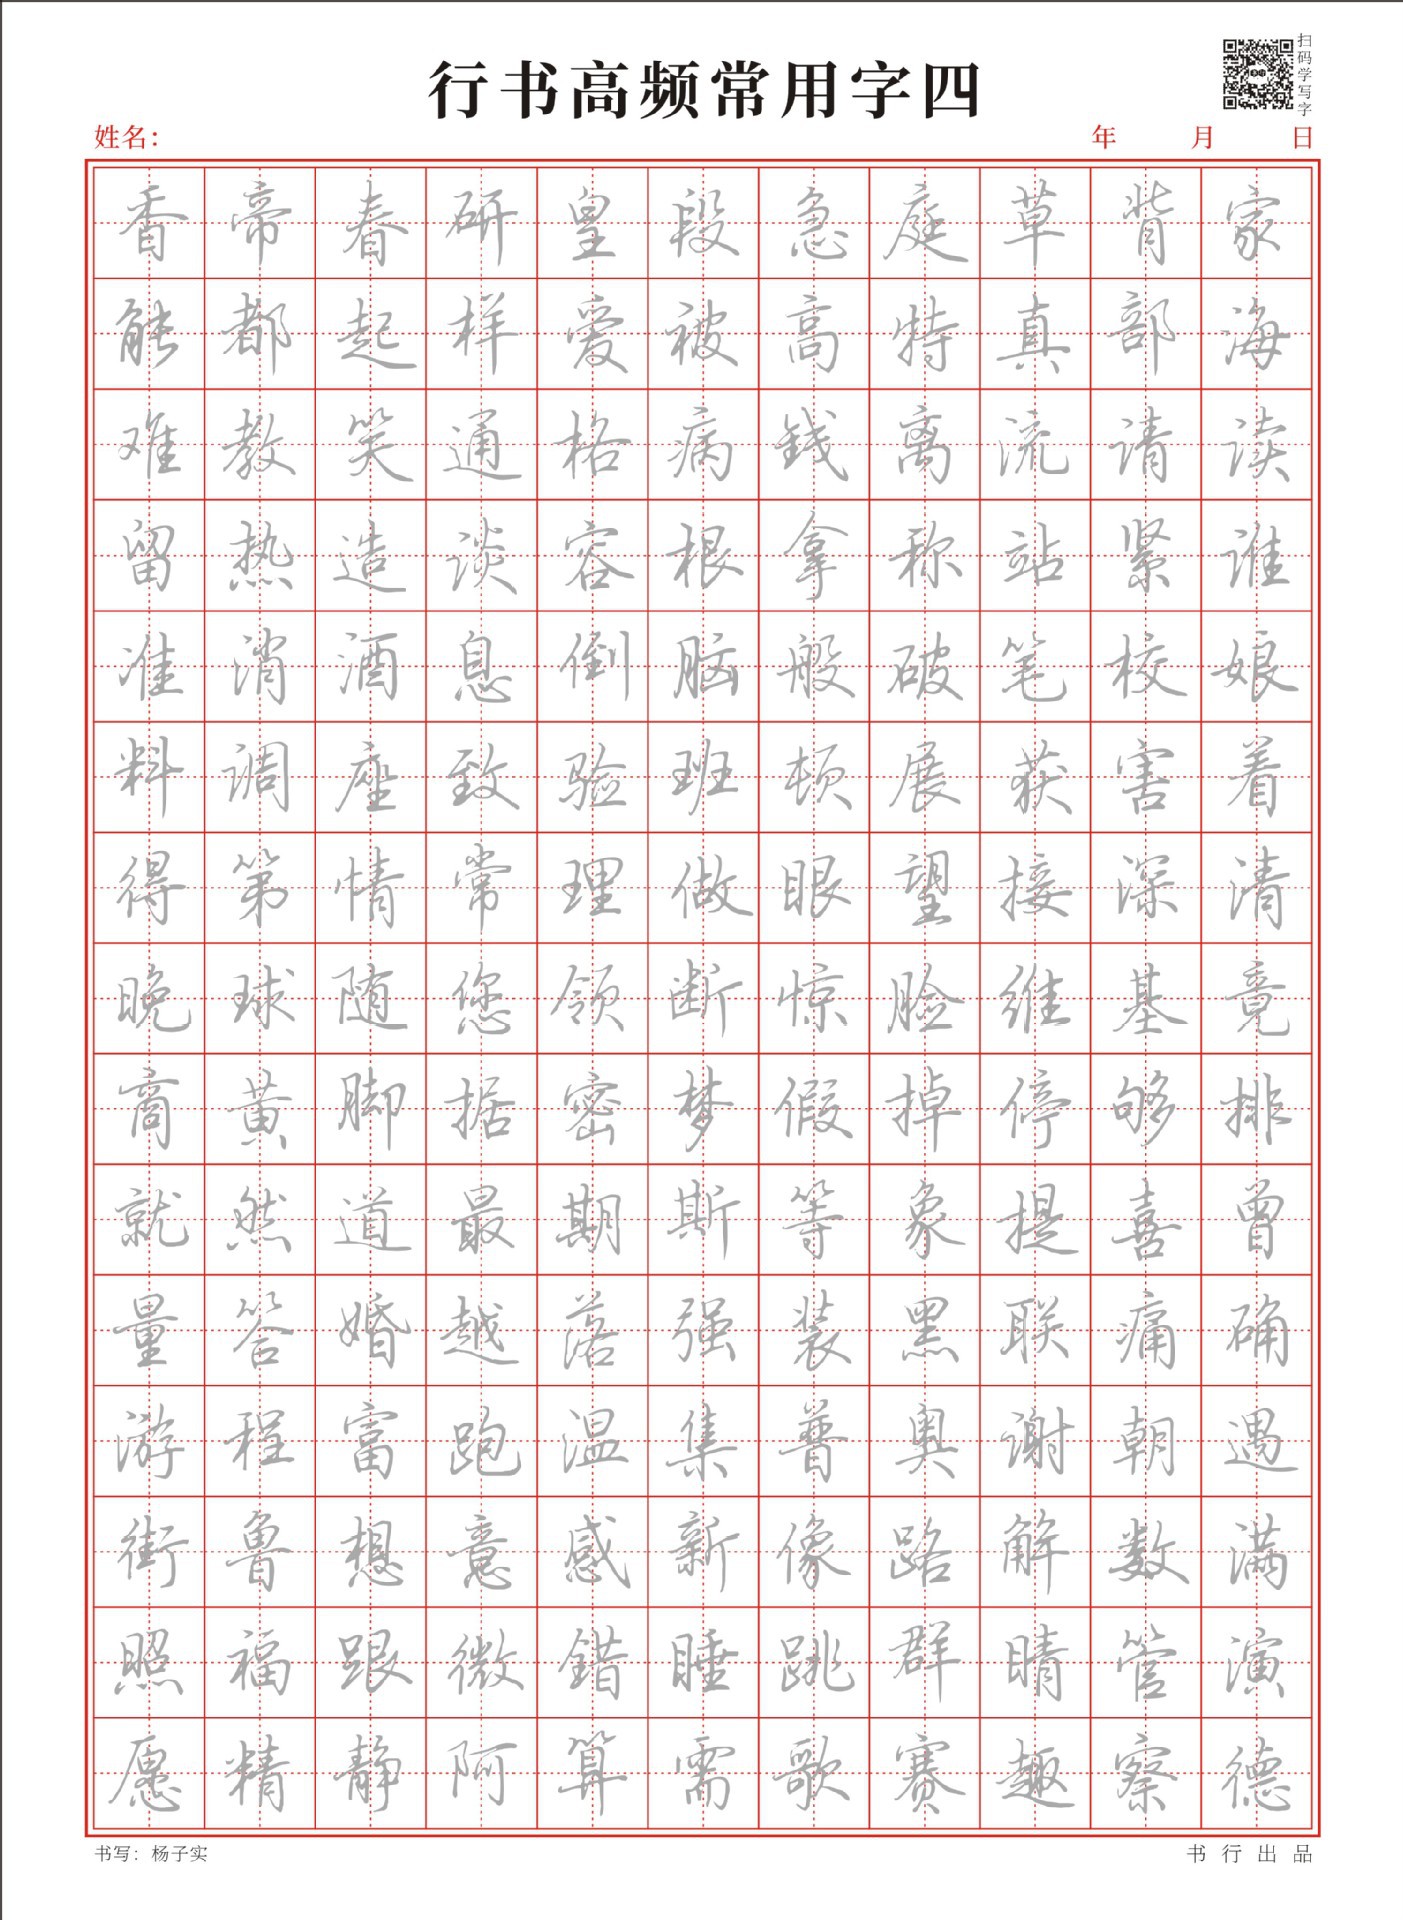 行书高频常用字四
扫码学写字
姓名： 年 月 日
香帝春研皇段急庭草背家
能都起样爱被高特真部海
难教笑通格病钱离流请读
留热造谈容根拿称站紧谁
准消酒息倒脑般破笔校娘
料调座致验班顿展获害着
得第情常理做眼望接深清
晚球随您领断惊脸维基竟
商黄脚据密梦假掉停够排
就然道最期斯等象提喜曾
量答婚越落强装黑联痛确
游程富跑温集普奥谢朝遇
街鲁想意感新像路解数满
照福跟微错睡跳群睛管演
愿精静阿算需歌赛趣察德
书写：杨子实
书行出品